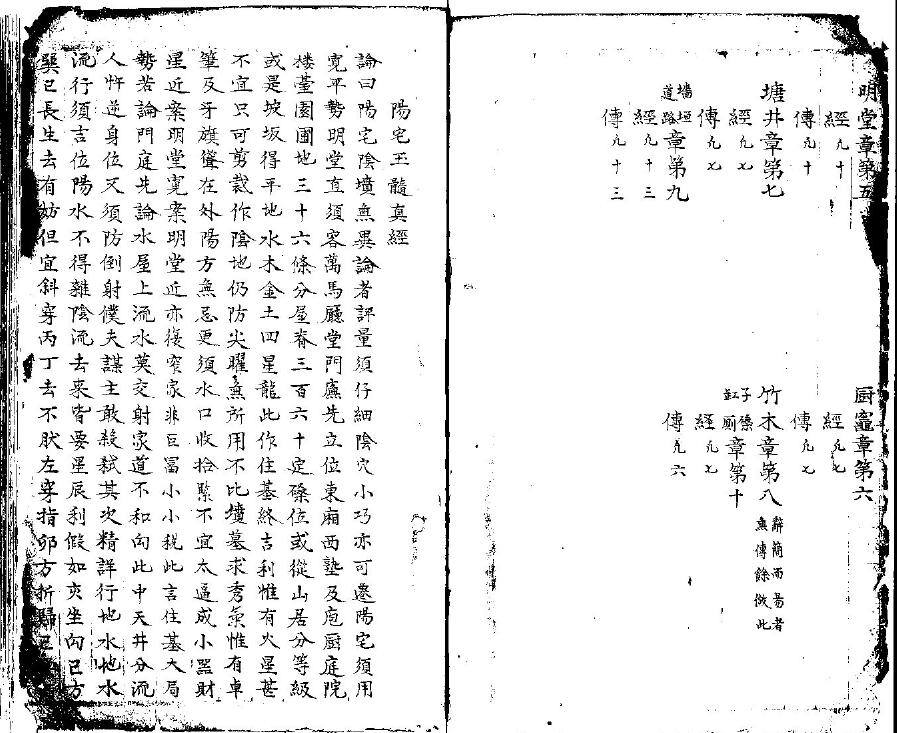 明堂章第五
經凡十
傳凡十
塘井章第七
經凡七
傳凡七
墻垣道路章第九
經凡十三
傳凡十三
厨竈章第六
經凡七
傳凡七
竹木章第八
辭簡而易者
無傳餘倣此
經凡七
傳凡六
章第十
陽宅玉髓真經
論曰陽宅陰墳無異論者評量須仔細陰穴小巧亦可遷陽宅須用
寬平勢明堂直須容萬馬廳堂門廡先立位東廂西塾及庖厨庭院
樓臺園圃地三十六條分屋脊三百六十定磉位或從山居分等級
或是坡坂得平地水木金土四星龍此作住基終吉利惟有火星甚
不宜只可剪裁作陰地仍防尖曜無所用不比墳墓求秀氣惟有卓
筆及牙旗聳在外陽方無忌更須水口收拾緊不宜太逼成小器財
星近案明堂寬案明堂近亦復窄家非巨富小小稅此言住基大局
勢若論門庭先論水屋上流水莫交射家道不和向此中天井分流
人忤逆身位又須防倒射僕夫謀主敢殺弑其次精詳行地水地水
流行須言位陽水不得雜陰流去來皆要星辰利假如亥坐向巳方
巽巳長生去有妨但宜斜穿丙丁去不肰左穿指卯方折歸